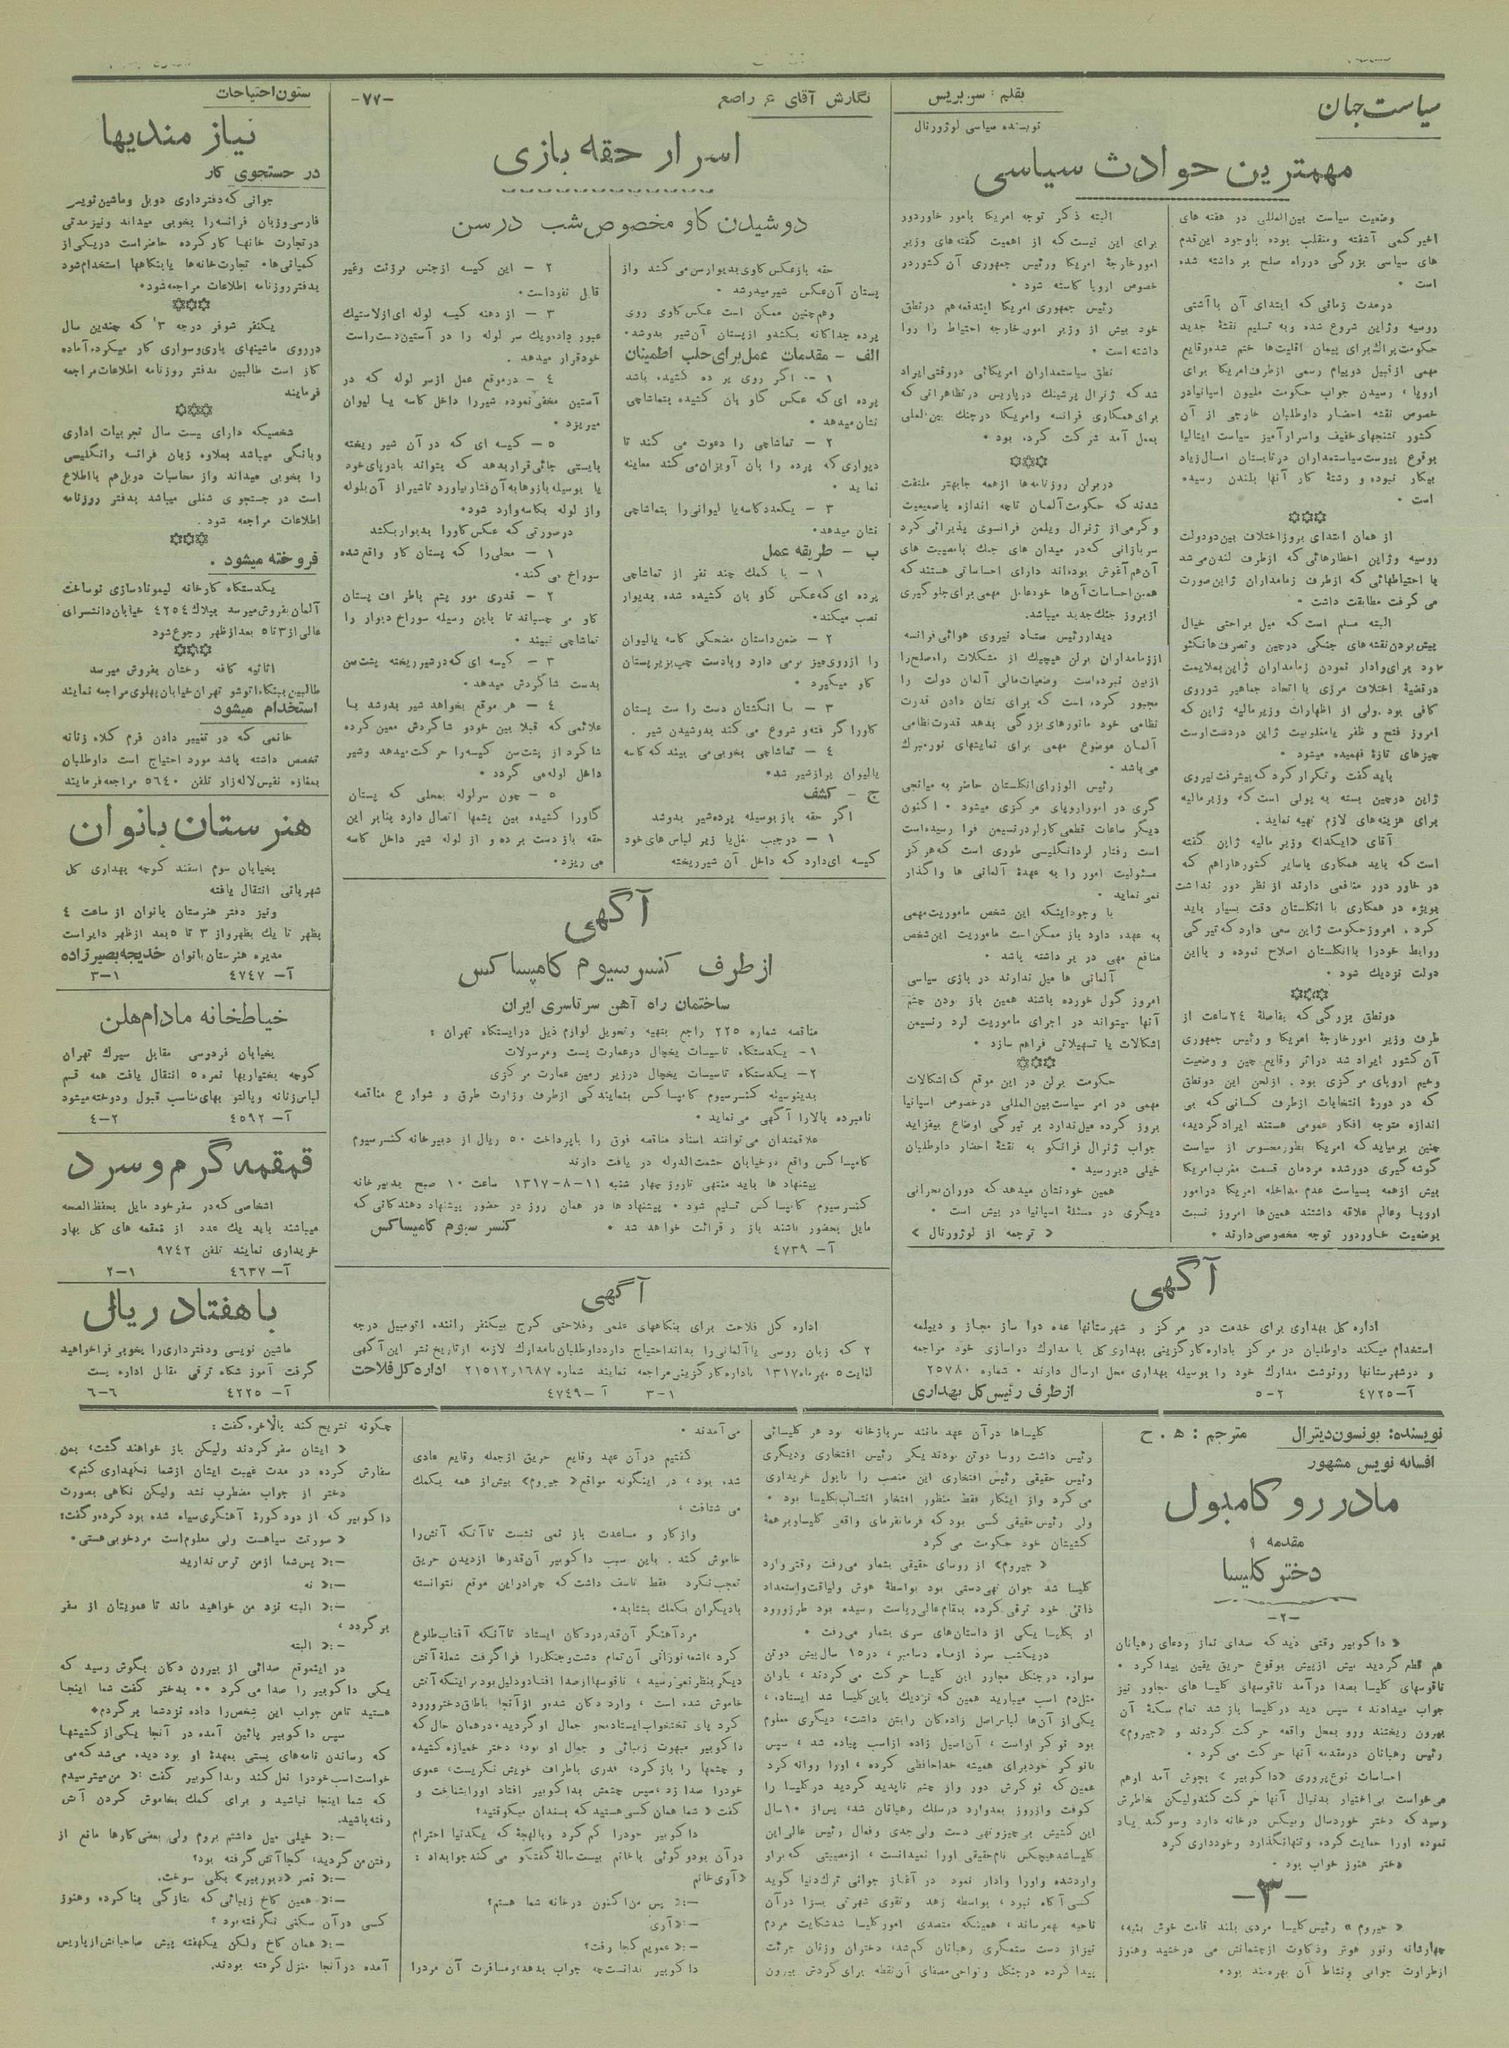 سیاست جهان
بقلم : سوبریس
نویسنده سیاسی لوژورنال
مهمترین حوادث سیاسی
وضعیت سیاست بین‌المللی در هفته های
اخیر کمی آشفته و منقلب بوده باوجود این قدم
های سیاسی بزرگی درراه صلح برداشته شده
است .
درمدت زمانی که ابتدای آن باآشتی
روسیه وژاپن شروع شده وبه تسلیم نقشهٔ جدید
حکومت پراك برای پیمان اقلیت‌ها ختم شده وقایع
مهمی ازقبیل دوپیام رسمی ازطرف امریکا برای
اروپا ، رسیدن جواب حکومت ملیون اسپانیادر
خصوص نقشه احضار داوطلبان خارجی از آن
کشور تشنجهای خفیف واسرارآمیز سیاست ایتالیا
بوقوع پیوست سیاستمداران درتابستان امسال زیاد
بیکار نبوده و رشتهٔ کار آنها بلندن رسیده
است .
از همان ابتدای بروزاختلاف بین دودولت
روسیه وژاپن اخطارهائی که ازطرف لندن می‌شد
با احتیاطهائی که ازطرف زمامداران ژاپن صورت
می گرفت مطابقت داشت .
البته مسلم است که میل براحتی خیال
پیش بردن نقشه های جنگی درچین وتصرف هانکئو
خود برای وادار نمودن زمامداران ژاپن بملایمت
درقضیهٔ اختلاف مرزی با اتحاد جماهیر شوروی
کافی بود . ولی از اظهارات وزیر مالیه ژاپن که
امروز فتح و ظفر یا مغلوبیت ژاپن دردست اوست
چیزهای تازهٔ فهمیده میشود .
باید گفت وتکرار کرد که پیشرفت نیروی
ژاپن درچین بسته به پولی است که وزیر مالیه
برای هزینه‌های لازم تهیه نماید .
آقای «ایکدا» وزیر مالیه ژاپن گفته
است که باید همکاری باسایر کشورهاراهم که
در خاور دور منافعی دارند از نظر دور نداشت
بویژه در همکاری با انگلستان دقت بسیار باید
کرد . امروزحکومت ژاپن سعی دارد که تیرگی
روابط خودرا باانگلستان اصلاح نموده و باین
دولت نزدیك شود .
دونطق بزرگی که بفاصلهٔ ۲۴ ساعت از
طرف وزیر امور خارجهٔ امریکا و رئیس جمهوری
آن کشور ایراد شد دراثر وقایع چین و وضعیت
وخیم اروپای مرکزی بود . ازلحن این دونطق
که در دورهٔ انتخابات ازطرف کسانی که بی
اندازه متوجه افکار عمومی هستند ایراد گردیده
چنین برمیاید که امریکا بطور محسوس از سیاست
گوشه گیری دورشده مردمان قسمت مغرب امریکا
بیش ازهمه بسیاست عدم مداخله امریکا درامور
اروپا وعالم علاقه داشتند همین‌ها امروز نسبت
بوضعیت خاوردور توجه مخصوصی دارند .
البته ذکر توجه امریکا بامور خاوردور
برای این نیست که از اهمیت گفته‌های وزیر
امورخارجهٔ امریکا ورئیس جمهوری آن کشوردر
خصوص اروپا کاسته شود .
رئیس جمهوری امریکا ایندفعه هم درنطق
خود بیش از وزیر امور خارجه احتیاط را روا
داشته است .
نطق سیاستمداران امریکائی دروقتی ایراد
شد که ژنرال پرشینك درپاریس درتظاهراتی که
برای همکاری فرانسه وامریکا درجنك بین‌المللی
بعمل آمد شرکت کرده بود .
دربرلن روزنامه‌ها ازهمه جابهتر ملتفت
شدند که حکومت آلمان تاچه اندازه باصمیمیت
وگرمی از ژنرال ویلمن فرانسوی پذیرائی کرد
سربازانی که در میدان های جنك بامصیبت های
آن هم آغوش بوده‌اند دارای احساساتی هستند که
همین احساسات آن‌ها خودعامل مهمی برای جلوگیری
ازبروز جنك جدید میباشد.
دیداررئیس ستاد نیروی هوائی فرانسه
اززمامداران برلن هیچیك از مشکلات راه صلح را
ازبین نبرده است وضعیات مالی آلمان دولت را
مجبور کرده است که برای نشان دادن قدرت
نظامی خود مانورهای بزرگی بدهد قدرت نظامی
آلمان موضوع مهمی برای نمایشهای نورمبرك
می‌باشد .
رئیس الوزرای انگلستان حاضر به میانجی
گری در امور اروپای مرکزی میشود . اکنون
دیگر ساعات قطعی کار لردرنسیمن فرا رسیده است
است رفتار لرد انگلیسی طوری است که هرکز
مسئولیت امور را به عهدهٔ آلمانی ها واگذار
نمی نماید .
با وجوداینکه این شخص ماموریت مهمی
به عهده دارد باز ممکن است ماموریت این شخص
منافع مهی در بر داشته باشد .
آلمانی ها میل ندارند در بازی سیاسی
امروز گول خورده باشند همین باز بودن چشم
آنها میتواند در اجرای ماموریت لرد رنسیمن
اشکالات یا تسهیلاتی فراهم سازد .
حکومت برلن در این موقع که اشکالات
مهمی در امر سیاست بین‌المللی درخصوص اسپانیا
بروز کرده میل ندارد بر تیرگی اوضاع بیفزاید
جواب ژنرال فرانکو به نقشهٔ احضار داوطلبان
خیلی دیررسید .
همین خودنشان میدهد که دوران بحرانی
دیگری در مسئلهٔ اسپانیا در پیش است .
« ترجمه از لوژورنال »
آگهی
اداره کل بهداری برای خدمت در مرکز و شهرستانها عده دوا ساز مجاز و دیپلمه
استخدام میکند داوطلبان در مرکز باداره کارگزینی بهداری کل با مدارك دواسازی خود مراجعه
و درشهرستانها رونوشت مدارك خود را بوسیله بهداری محل ارسال دارند . شماره ۲۵۷۸۰
آ-۴۷۲۵ ۲-۵ ازطرف رئیس کل بهداری
نگارش آقای ع راصع
-۷۷-
اسرار حقه بازی
دوشیدن گاو مخصوص شب درسن
حقه بازعکس گاوی بدیوارسن می کشد واز
پستان آن‌عکس شیر میدرشد .
وهم‌چنین ممکن است عکس گاوی روی
پرده جداگانه بکشدو ازپستان آن شیر بدوشد .
الف - مقدمات عمل برای جلب اطمینان
۱ - اگر روی پر ده کشیده باشد
پرده ای که عکس گاو بان کشیده بتماشاچی
نشان میدهد .
۲ - تماشاچی را دعوت می کند تا
دیواری که پرده را بان آویزان می‌کند معاینه
نماید .
۳ - یکعدد کاسه یا لیوانی را بتماشاچی
نشان میدهد .
ب - طریقه عمل
۱ - با کمك چند نفر از تماشاچی
پرده ای که عکس گاو بان کشیده شده بدیوار
نصب میکند.
۲ - ضمن داستان مضحکی کاسه یالیوان
را ازروی میز برمی دارد وبادست چپ بزیر پستان
گاو میگیرد .
۳ - با انگشتان دست راست پستان
گاورا گرفته و شروع می کند بدوشیدن شیر .
۴ - تماشاچی بخوبی می بیند که کاسه
یالیوان پرازشیر شد .
ج - کشف
اگر حقه باز بوسیله پرده شیر بدوشد
۱ - درجیب بغل یا زیر لباس‌های خود
کیسه ای دارد که داخل آن شیر ریخته
۲ - این کیسه ازجنس برزنت وغیر
قابل نفوذ است .
۳ - از دهنه کیسه لوله ای ازلاستیك
عبور داده ویك سر لوله را در آستین دست راست
خود قرار میدهد .
۴ - درموقع عمل ازسر لوله که در
آستین مخفی نموده شیررا داخل کاسه یا لیوان
میریزد .
۵ - کیسه ای که در آن شیر ریخته
بایستی جائی قرار بدهد که بتواند بادوپای خود
یا بوسیله بازوها به آن فشار بیاورد تاشیر از آن بلوله
واز لوله بکاسه وارد شود .
درصورتی که عکس گاورا بدیوار بکشد
۱ - محلی را که پستان گاو واقع شده
سوراخ می کند .
۲ - قدری موو پشم باطراف پستان
گاو می چسباند تا باین وسیله سوراخ دیوار را
تماشاچی نبیند .
۳ - کیسه ای که درشیر ریخته پشت سن
بدست شاگردش میدهد .
۴ - هر موقع بخواهد شیر بدوشد با
علائمی که قبلا بین خودو شاگردش معین کرده
شاگرد از پشت سن کیسه را حرکت میدهد وشیر
داخل لوله می گردد .
۵ - چون سرلوله بمحلی که پستان
گاورا کشیده بین پشمها اتصال دارد بنابر این
حقه باز دست برده و از لوله شیر داخل کاسه
می ریزد .
آگهی
از طرف کنسرسیوم کامپساکس
ساختمان راه آهن سرتاسری ایران
مناقصه شماره ۲۲۵ راجع بتهیه وتحویل لوازم ذیل درایستگاه تهران :
۱- یکدستگاه تاسیسات یخچال درعمارت پست ومرسولات
۲- یکدستگاه تاسیسات یخچال درزیر زمین عمارت مرکزی
بدینوسیله کنسرسیوم کامپساکس بنمایندگی ازطرف وزارت طرق و شوارع مناقصه
نامبرده بالارا آگهی می نماید .
علاقمندان می توانند اسناد مناقصه فوق را باپرداخت ۵۰ ریال از دبیرخانه کنسرسیوم
کامپساکس واقع درخیابان حشمت‌الدوله در یافت دارند
پیشنهاد ها باید منتهی تاروز چهار شنبه ۱۱-۸-۱۳۱۷ ساعت ۱۰ صبح بدبیرخانه
کنسرسیوم کامپساکس تسلیم شود . پیشنهاد ها در همان روز در حضور پیشنهاد دهندگانی که
مایل بحضور باشند باز و قرائت خواهد شد . کنسرسیوم کامپساکس
آ- ۴۷۳۹
آگهی
اداره کل فلاحت برای بنگاههای علمی وفلاحتی کرج بیکنفر راننده اتومبیل درجه
۲ که زبان روسی یاآلمانی را بداند احتیاج دارد داوطلبان بامدارك لازمه ازتاریخ نشر این آگهی
لغایت ۵ مهر ماه ۱۳۱۷ باداره کارگزینی مراجعه نمایند شماره ۲۱۵۱۲٫۱۶۸۷ اداره کل فلاحت
۱-۳ آ-۴۷۴۹
ستون احتیاجات
نیازمندیها
در جستجوی کار
جوانی که دفترداری دوبل وماشین نویسی
فارسی وزبان فرانسه را بخوبی میداند ونیز مدتی
درتجارت خانها کار کرده حاضر است دریکی از
کمپانی‌ها. تجارت خانه‌ها یابنگاهها استخدام شود
بدفتر روزنامه اطلاعات مراجعه شود .
یکنفر شوفر درجه ۳ که چندین سال
درروی ماشینهای باری وسواری کار میکرده آماده
کار است طالبین بدفتر روزنامه اطلاعات مراجعه
فرمایند
شخصیکه دارای بیست سال تجربیات اداری
وبانگی میباشد بعلاوه زبان فرانسه وانگلیسی
را بخوبی میداند واز محاسبات دوبل هم بااطلاع
است در جستجوی شغلی میباشد بدفتر روزنامه
اطلاعات مراجعه شود .
فروخته میشود .
یکدستگاه کارخانه لیمونادسازی نوساخت
آلمان بفروش میرسد بپلاك ۴۲۵۴ خیابان دانشسرای
عالی از ۳ تا ۵ بعد ازظهر رجوع شود
اثاثیه کافه رخشان بفروش میرسد
طالبین ببنگاه اتوشو تهران خیابان پهلوی مراجعه نمایند
استخدام میشود
خانمی که در تغییر دادن فرم کلاه زنانه
تخصص داشته باشد مورد احتیاج است داوطلبان
بمغازه نفیس لاله‌زار تلفن ۵۶۴۰ مراجعه فرمایند
هنرستان بانوان
بخیابان سوم اسفند کوچه بهداری کل
شهربانی انتقال یافته
ونیز دفتر هنرستان بانوان از ساعت ۴
بظهر تا یك بظهر واز ۳ تا ۵ بعد ازظهر دایراست
مدیره هنرستان بانوان خدیجه بصیرزاده
آ- ۴۷۴۷ ۱-۳
خیاطخانه مادام هلن
بخیابان فردوسی مقابل سیرك تهران
کوچه بختیاریها نمره ۵ انتقال یافت همه قسم
لباس زنانه وپالتو بهای مناسب قبول ودوخته میشود
آ- ۴۵۹۲ ۲-۴
قمقمه گرم و سرد
اشخاصی که در سفر خود مایل بحفظ الصحه
میباشند باید یك عدد از قمقمه های کل بهار
خریداری نمایند تلفن ۹۷۴۲
آ- ۴۶۳۷ ۱-۲
با هفتاد ریال
ماشین نویسی ودفترداری را بخوبی فراخواهید
گرفت آموزشگاه ترقی مقابل اداره پست
آ- ۴۲۲۵ ۶-۶
نویسنده: بونسون دیترال مترجم : ه . ح
افسانه نویس مشهور
مادر رو کامبول
مقدمه ۱
دختر کلیسا
-۲-
« داگوبیر وقتی دید که صدای نماز ودعای رهبانان
هم قطع گردید بیش ازپیش بوقوع حریق یقین پیدا کرد .
ناقوسهای کلیسا بصدا درآمد ناقوسهای کلیسا های مجاور نیز
جواب میدادند ، سپس دید درکلیسا باز شد تمام سکنهٔ آن
بیرون ریختند ورو بمحل واقعه حرکت کردند و «جیروم»
رئیس رهبانان درمقدمه آنها حرکت می کرد .
احساسات نوع‌پروری «داگوبیر» بجوش آمد اوهم
می‌خواست بی‌اختیار بدنبال آنها حرکت کند ولیکن خاطرش
رسید که دختر خوردسال وبیکس درخانه دارد وسوگند یاد
نموده اورا حمایت کرده وتنها نگذارد وخودداری کرد
دختر هنوز خواب بود .
-۳-
« جیروم » رئیس کلیسا مردی بلند قامت خوش بنیه،
چهارشانه ونور هوش وذکاوت ازچشمانش می درخشید وهنوز
ازطراوت جوانی ونشاط آن بهره‌مند بود .
کلیساها درآن عهد مانند سربازخانه بود هر کلیسائی
رئیس داشت روسا دوتن بودند یکی رئیس افتخاری ودیگری
رئیس حقیقی رئیس افتخاری این منصب را باپول خریداری
می کرد واز اینکار فقط منظور افتخار انتساب بکلیسا بود .
ولی رئیس حقیقی کسی بود که فرمانفرمای واقعی کلیسا وبرهمهٔ
کشیشان خود حکومت می کرد
« جیروم» از روسای حقیقی بشمار می‌رفت وقتی وارد
کلیسا شد جوان تهی‌دستی بود بواسطهٔ هوش ولیاقت واستعداد
ذاتی خود ترقی کرده بمقام عالی ریاست رسیده بود طرزورود
او بکلیسا یکی از داستان‌های سری بشمار می‌رفت .
دریکشب سرد ازماه دسامبر ، در ۱۵ سال پیش دوتن
سواره درجنگل مجاور این کلیسا حرکت می‌کردند ، باران
مثل‌دم اسب میبارید همین که نزدیك باین کلیسا شد ایستاده ،
یکی از آن‌ها لباس اصل زاده‌گان رابتن داشت، دیگری معلوم
بود نوکر اواست ، آن‌اصیل زاده ازاسب پیاده شد ، سپس
بانوکر خودبرای همیشه خداحافظی کرده ، اورا روانه کرد
همین که نوکرش دور واز چشم ناپدید گردید درکلیسا را
کوفت وازروز بعدوارد درسلك رهبانان شد، پس‌از ۱۰ سال
این کشیش بی‌چیزوتهی دست ولی‌جدی وفعال رئیس عالی‌این
کلیسا شد هیچکس نام حقیقی اورا نمیدانست ، ازمصیبتی که براو
وارد شده واورا وادار نمود در آغاز جوانی ترك دنیا گوید
کسی آگاه نبود ، بواسطه زهد وتقوی شهرتی بسزا درآن
ناحیه بهم‌رساند ، همینکه متصدی امور کلیسا شد شکایت مردم
نیز از دست ستمگری رهبانان کم‌شد، دختران وزنان جرئت
پیدا کرده درجنگل ونواحی مصفای آن نقطه برای گردش بیرون
می آمدند .
گفتیم درآن عهد وقایع حریق ازجمله وقایع عادی
شده بود ، در اینگونه مواقع «جیروم» بیش از همه بکمك
می شتافت ،
وازکار و مساعدت باز نمی نشست تاآنکه آتش‌را
خاموش کند . باین سبب داگوبیر آن‌قدرها ازدیدن حریق
تعجب نکرد فقط تاسف داشت که چرادراین موقع نتوانسته
بادیگران بکمك بشتابد.
مردآهنگر آن‌قدردردکان ایستاد تاآنکه آفتاب طلوع
کرد ، اشعه نورانی آن تمام دشت وجنگل را فراگرفت شعلهٔ آتش
دیگر بنظر نمیرسید ، ناقوسها ازصدا افتادودلیل بود براینکه آتش
خاموش شده است ، وارد دکان شده و ازآنجا باطاق دختر ورود
کرد پای تختخواب ایستاد محو جمال او گردید. درهمان حال که
داگوبیر مبهوت زیبائی و جمال او بود، دختر خمیازه کشیده
و چشمها را باز کرد، قدری باطراف خویش نگریست، عموی
خودرا صدا زد ، سپس چشمش بداگوبیر افتاد اورا شناخت و
گفت « شما همان کسی هستید که پسندان میکوفتید؟
داگوبیر خودرا گم کرد وبالهجهٔ که یکدنیا احترام
درآن بود و گوئی باخانم بیست سالهٔ گفتگو می کند جوابداد :
«آری خانم
-: « پس من اکنون درخانه شما هستم؟
-: «آری
-: «عمویم کجا رفت؟
داگوبیر ندانست چه جواب بدهد ومسافرت آن مردرا
چگونه تشریح کند بالاخره گفت :
« ایشان سفر کردند ولیکن باز خواهند گشت، بمن
سفارش کرده در مدت غیبت ایشان ازشما نگهداری کنم»
دختر از جواب مضطرب نشد ولیکن نگاهی بصورت
داگوبیر که از دود کورهٔ آهنگری سیاه شده بود کرده وگفت:
« صورتت سیاهست ولی معلوم است مرد خوبی هستی .
-: « پس شما ازمن ترس ندارید
-: « نه
-: « البته نزد من خواهید ماند تا عمویتان از سفر
برگردد ،
-: « البته
در اینموقع صدائی از بیرون دکان بگوش رسید که
یکی داگوبیر را صدا می کرد .. بدختر گفت شما اینجا
هستید تامن جواب این شخص را داده نزدشما برگردم»
سپس داگوبیر پائین آمده در آنجا یکی ازکشیشها
که رساندن نامه‌های پستی بعهدهٔ او بود دیده می‌شد که‌می
خواست اسب خودرا نعل کند وبداگوبیر گفت «: من میترسیدم
که شما اینجا نباشید و برای کمك بخاموش کردن آتش
رفته باشید.
-: « خیلی میل داشتم بروم ولی بعضی کارها مانع از
رفتن من گردید، کجا آتش گرفته بود؟
-: « قصر «دیوربیر» بکلی سوخت.
-: « همین کاخ زیبائی که بتازگی بنا کرده وهنوز
کسی درآن سکنی نگرفته بود ؟
-: « همان کاخ ولیکن یکهفته پیش صاحبانش ازپاریس
آمده درآنجا منزل گرفته بودند.